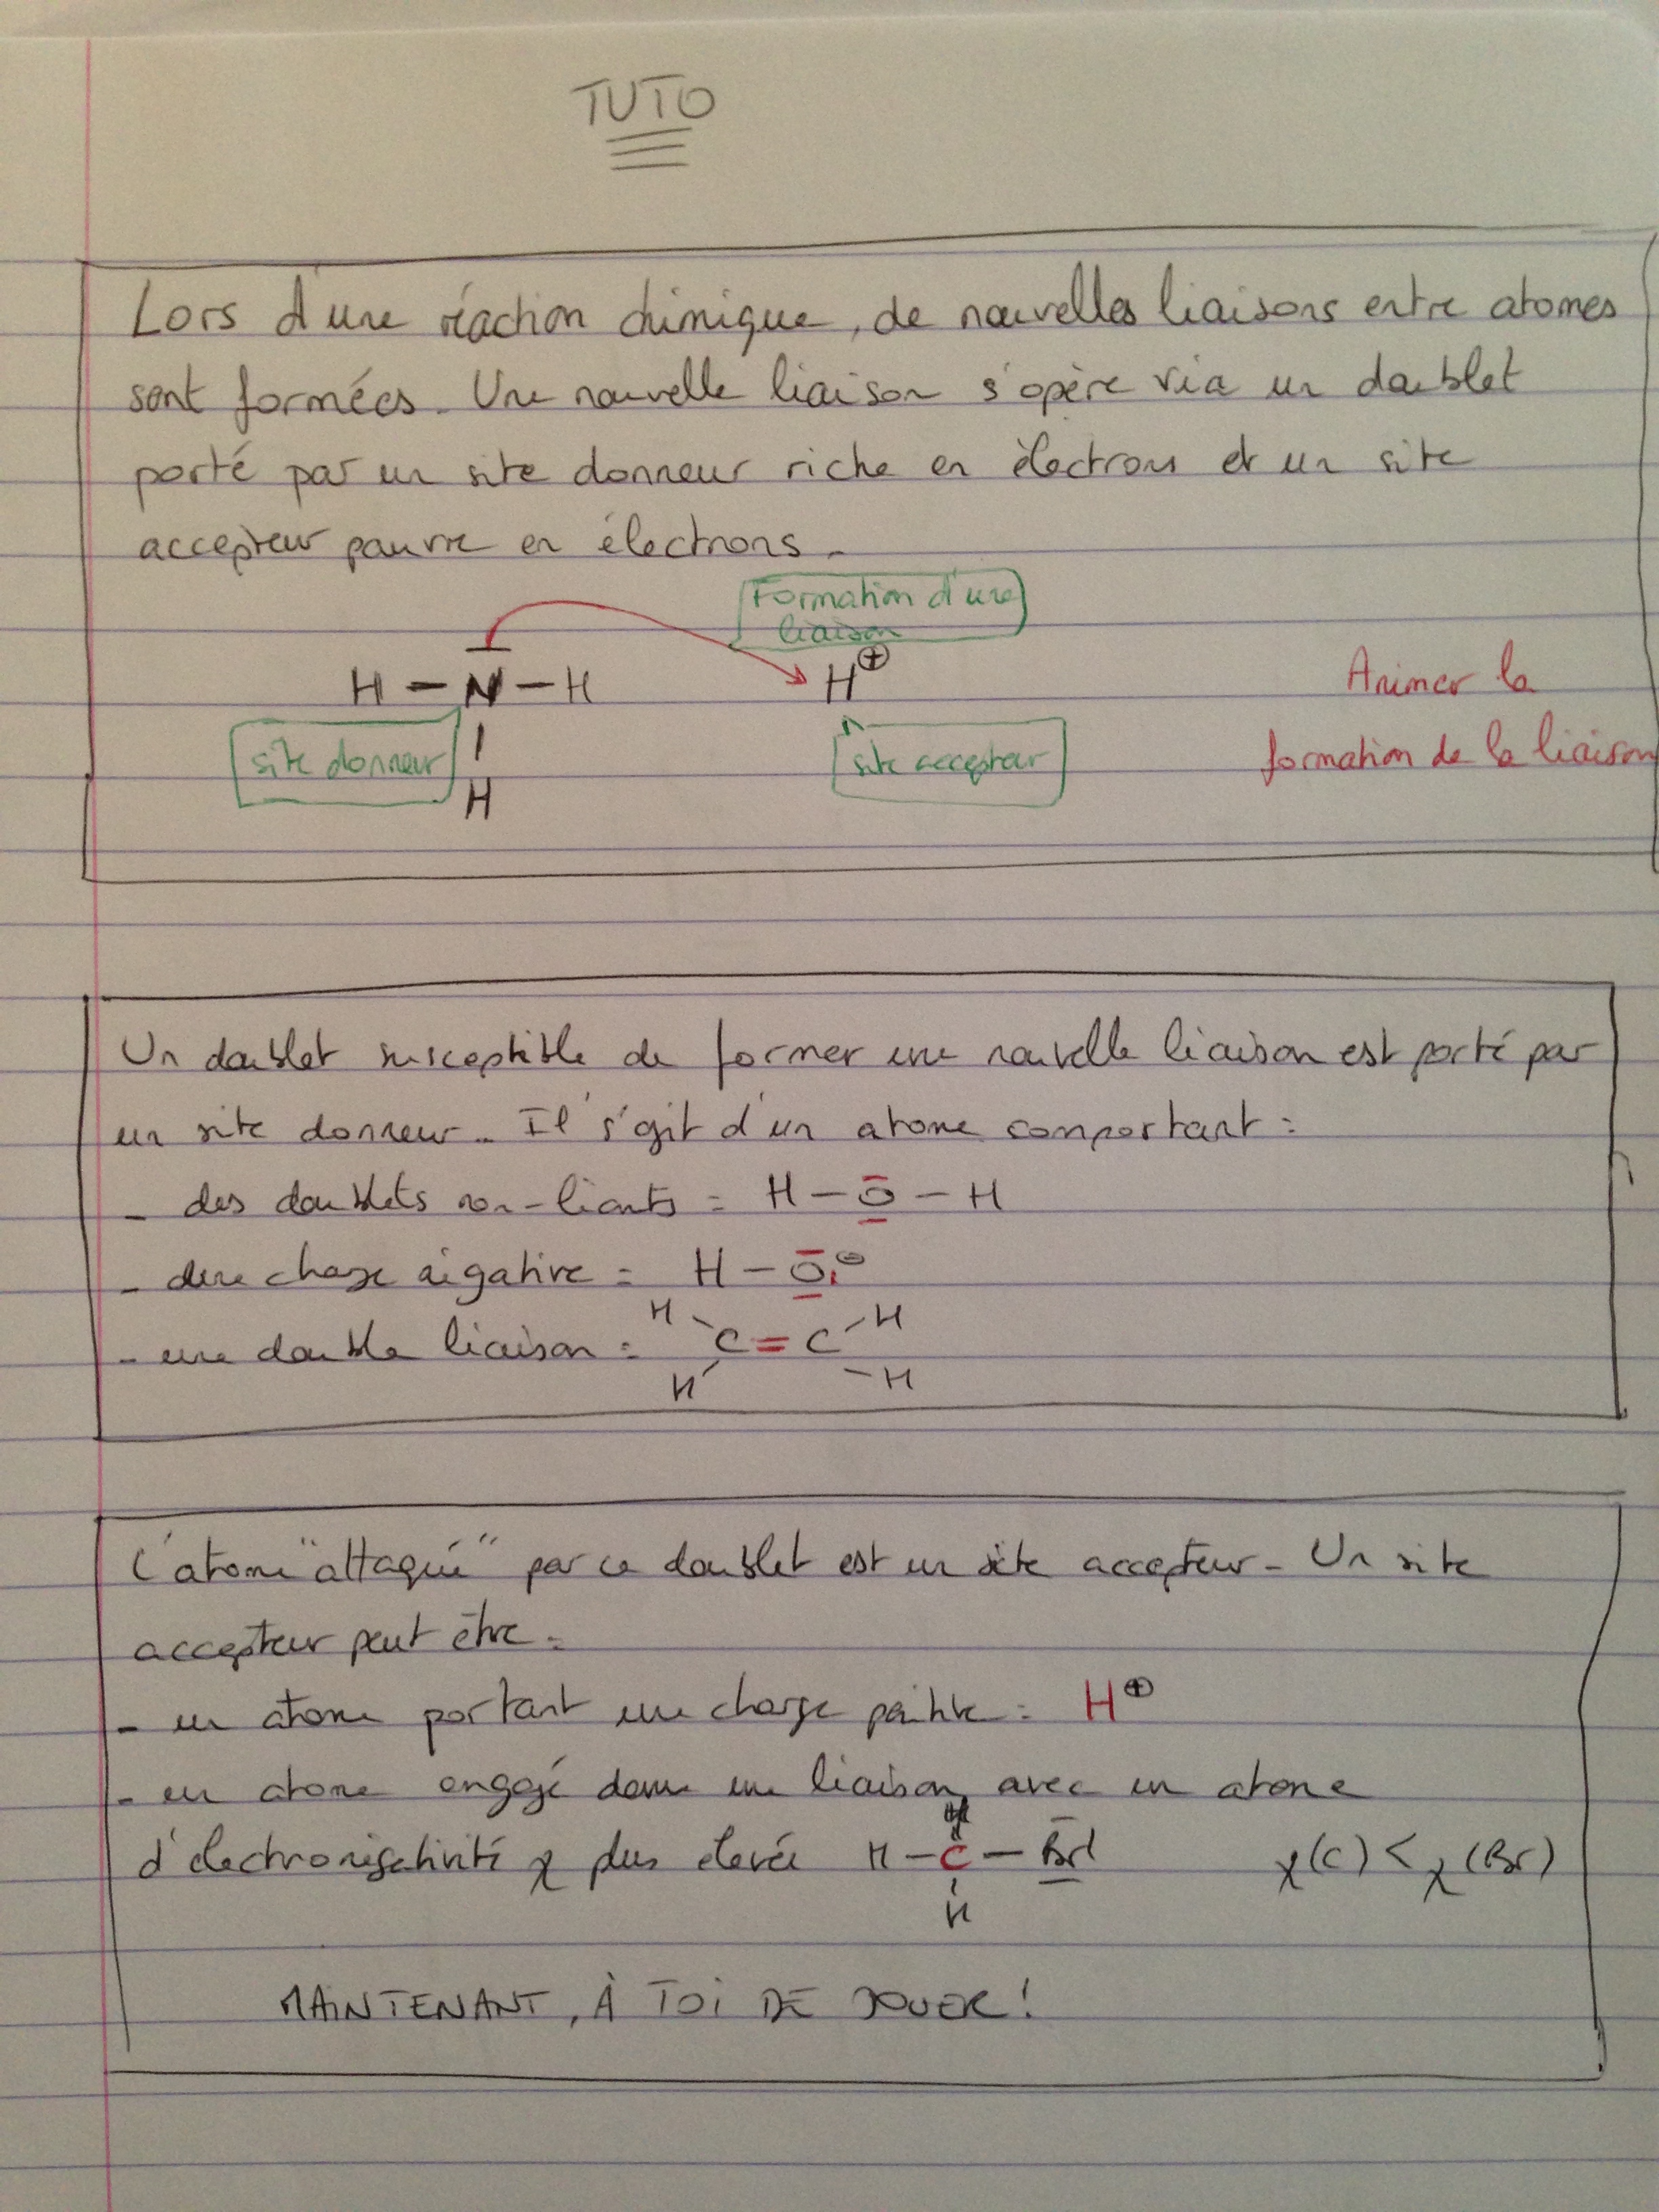 TUTO
Lors d'une réaction chimique, de nouvelles liaisons entre atomes
sont formées. Une nouvelle liaison s'opère via un doublet
porté par un site donneur riche en électrons et un site
accepteur pauvre en électrons.
Formation d'une
liaison
H – N – H H⊕
Animer la
formation de la liaison
site donneur
site accepteur
H
Un doublet susceptible de former une nouvelle liaison est porté par
un site donneur. Il s'git d'un atome comportant :
- des doublets non-liants : H – O – H
- une charge négative : H – O⊖
- une double liaison : H H
C = C
H H
L'atome "attaqué" par ce doublet est un site accepteur. Un site
accepteur peut être :
- un atome portant une charge positive : H⊕
- un atome engagé dans une liaison avec un atome
d'électronégativité χ plus élevée H – C – Br χ(C) < χ(Br)
H
MAINTENANT, À TOI DE JOUER !